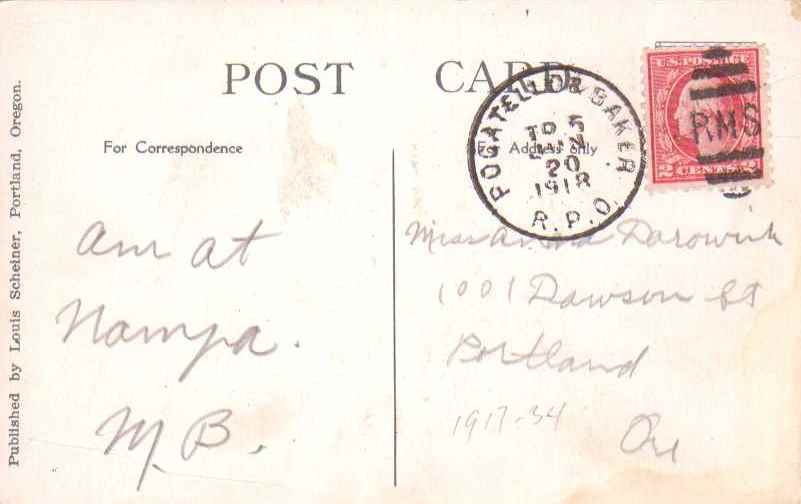 POST CARD
For Correspondence
For Address only
Published by Louis Scheiner, Portland, Oregon.
POCATELLO & BAKER
TR 5
JAN
20
1918
R.P.O.
RMS
U.S. POSTAGE
2 CENTS 2
am at
Nampa.
M. B.
Miss Anna
1001 Dawson St
Portland
Ore
1917-34